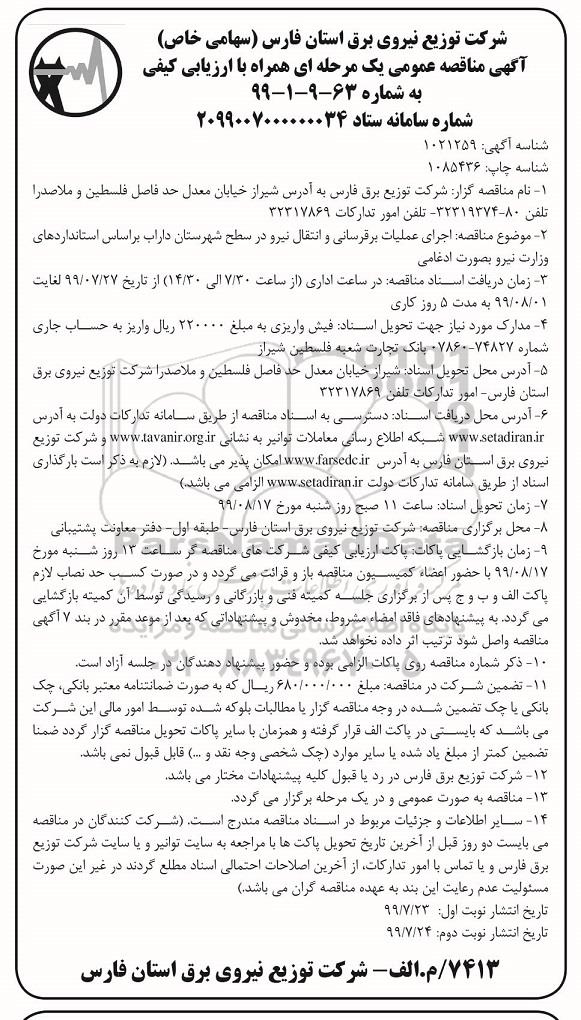 شرکت توزیع نیروی برق استان فارس (سهامی خاص)
آگهی مناقصه عمومی یک مرحله ای همراه با ارزیابی کیفی
به شماره ۶۳-۹-۱-۹۹
شماره سامانه ستاد ۲۰۹۹۰۰۷۰۰۰۰۰۰۰۳۴
شناسه آگهی: ۱۰۲۱۲۵۹
شناسه چاپ: ۱۰۸۵۴۳۶
۱- نام مناقصه گزار: شرکت توزیع برق فارس به آدرس شیراز خیابان معدل حد فاصل فلسطین و ملاصدرا
تلفن ۸۰-۳۲۳۱۹۳۷۴- تلفن امور تدارکات ۳۲۳۱۷۸۶۹
۲- موضوع مناقصه: اجرای عملیات برقرسانی و انتقال نیرو در سطح شهرستان داراب براساس استانداردهای
وزارت نیرو بصورت ادغامی
۳- زمان دریافت اسناد مناقصه: در ساعت اداری (از ساعت ۷/۳۰ الی ۱۴/۳۰) از تاریخ ۹۹/۰۷/۲۷ لغایت
۹۹/۰۸/۰۱ به مدت ۵ روز کاری
۴- مدارک مورد نیاز جهت تحویل اسناد: فیش واریزی به مبلغ ۲۲۰۰۰۰ ریال واریز به حساب جاری
شماره ۷۴۸۲۷-۰۷۸۶۰ بانک تجارت شعبه فلسطین شیراز
۵- آدرس محل تحویل اسناد: شیراز خیابان معدل حد فاصل فلسطین و ملاصدرا شرکت توزیع نیروی برق
استان فارس- امور تدارکات تلفن ۳۲۳۱۷۸۶۹
۶- آدرس محل دریافت اسناد: دسترسی به اسناد مناقصه از طریق سامانه تدارکات دولت به آدرس
www.setadiran.ir شبکه اطلاع رسانی معاملات توانیر به نشانی www.tavanir.org.ir و شرکت توزیع
نیروی برق استان فارس به آدرس www.farsedc.ir امکان پذیر می باشد. (لازم به ذکر است بارگذاری
اسناد از طریق سامانه تدارکات دولت www.setadiran.ir الزامی می باشد.)
۷- زمان تحویل اسناد: ساعت ۱۱ صبح روز شنبه مورخ ۹۹/۰۸/۱۷
۸- محل برگزاری مناقصه: شرکت توزیع نیروی برق استان فارس- طبقه اول- دفتر معاونت پشتیبانی
۹- زمان بازگشایی پاکات: پاکت ارزیابی کیفی شرکت های مناقصه گر ساعت ۱۳ روز شنبه مورخ
۹۹/۰۸/۱۷ با حضور اعضاء کمیسیون مناقصه باز و قرائت می گردد و در صورت کسب حد نصاب لازم
پاکت الف و ب و ج پس از برگزاری جلسه کمیته فنی و بازرگانی و رسیدگی توسط آن کمیته بازگشایی
می گردد. به پیشنهادهای فاقد امضاء مشروط، مخدوش و پیشنهاداتی که بعد از موعد مقرر در بند ۷ آگهی
مناقصه واصل شود ترتیب اثر داده نخواهد شد.
۱۰- ذکر شماره مناقصه روی پاکات الزامی بوده و حضور پیشنهاد دهندگان در جلسه آزاد است.
۱۱- تضمین شرکت در مناقصه: مبلغ ۶۸۰/۰۰۰/۰۰۰ ریال که به صورت ضمانتنامه معتبر بانکی، چک
بانکی یا چک تضمین شده در وجه مناقصه گزار یا مطالبات بلوکه شده توسط امور مالی این شرکت
می باشد که بایستی در پاکت الف قرار گرفته و همزمان با سایر پاکات تحویل مناقصه گزار گردد ضمنا
تضمین کمتر از مبلغ یاد شده یا سایر موارد (چک شخصی وجه نقد و ...) قابل قبول نمی باشد.
۱۲- شرکت توزیع برق فارس در رد یا قبول کلیه پیشنهادات مختار می باشد.
۱۳- مناقصه به صورت عمومی و در یک مرحله برگزار می گردد.
۱۴- سایر اطلاعات و جزئیات مربوط در اسناد مناقصه مندرج است. (شرکت کنندگان در مناقصه
می بایست دو روز قبل از آخرین تاریخ تحویل پاکت ها با مراجعه به سایت توانیر و یا سایت شرکت توزیع
برق فارس و یا تماس با امور تدارکات، از آخرین اصلاحات احتمالی اسناد مطلع گردند در غیر این صورت
مسئولیت عدم رعایت این بند به عهده مناقصه گران می باشد.)
تاریخ انتشار نوبت اول: ۹۹/۷/۲۳
تاریخ انتشار نوبت دوم: ۹۹/۷/۲۴
۷۴۱۳/م.الف- شرکت توزیع نیروی برق استان فارس